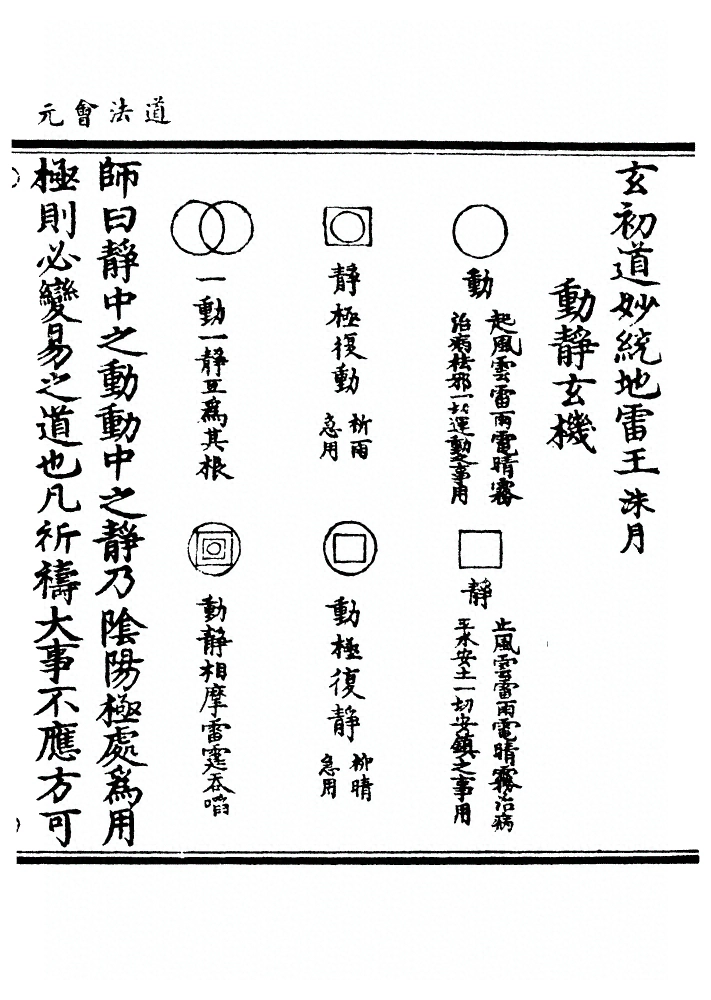 道法會元
玄初道妙統地雷王洙月
動靜玄機
動
起風雲雷雨電晴霧
治病祛邪一切運動之事用
靜
止風雲雷雨電晴霧治病
平水安土一切安鎮之事用
靜極復動
祈雨
急用
動極復靜
祈晴
急用
一動一靜互爲其根
動靜相摩雷霆吞啗
師曰靜中之動動中之靜乃陰陽極處爲用
極則必變易之道也凡祈禱大事不應方可